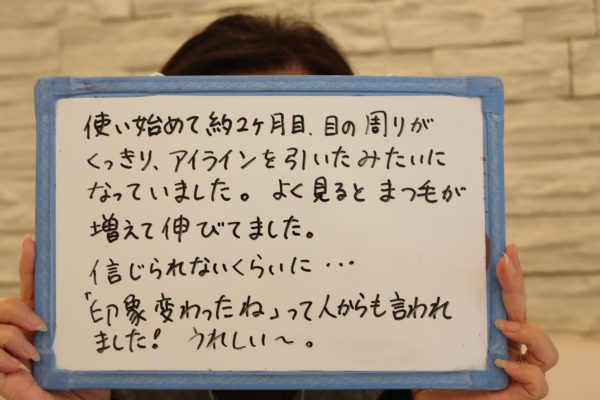 使い始めて約2ヶ月目、目の周りが
くっきり、アイラインを引いたみたいに
なっていました。よく見るとまつ毛が
増えて伸びてました。
信じられないくらいに・・・
「印象変わったね」って人からも言われ
ました! うれしい〜。